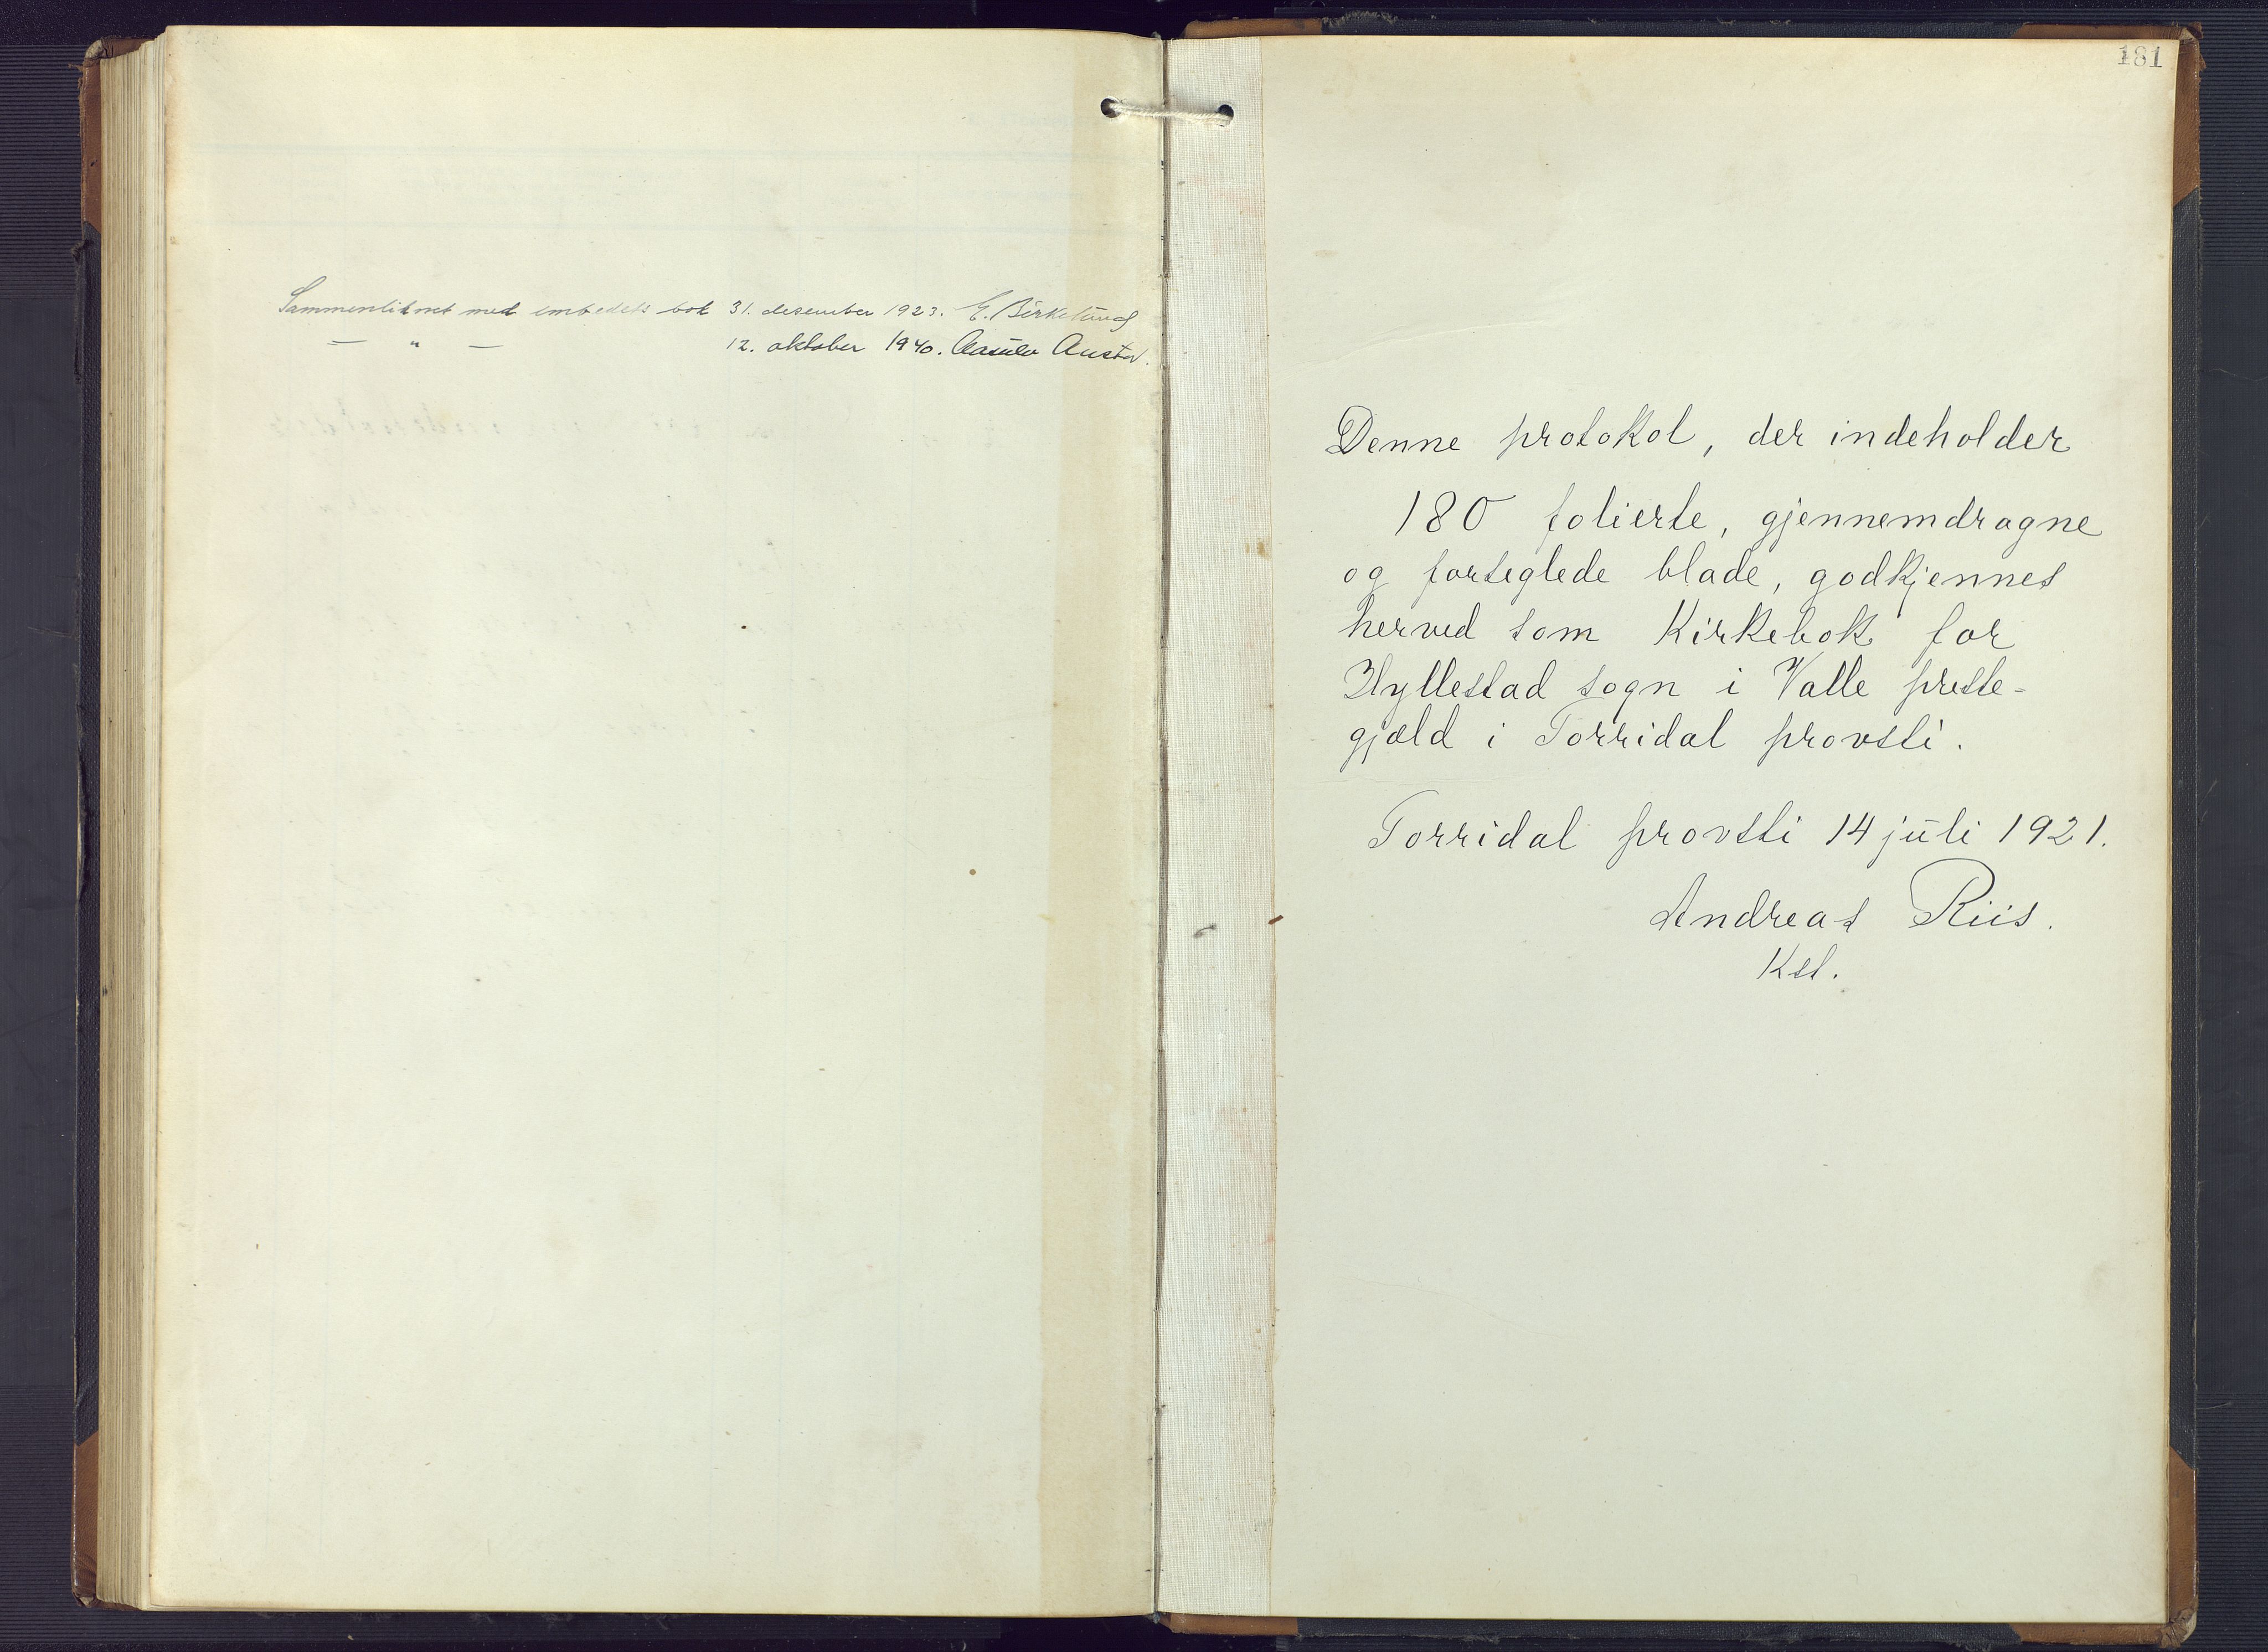 Sammenliknet med embedets bok 31. desember 1923. E. Birkelund
— " — 12. oktober 1940. Aasulv Austad.
181
Denne protokol, der indeholder
180 folierte, gjennemdragne
og forseglede blade, godkjennes
herved som Kirkebok for
Hyllestad sogn i Valle preste-
gjæld i Torridal provsti.
Torridal provsti 14 juli 1921.
Andreas Riis.
Kst.